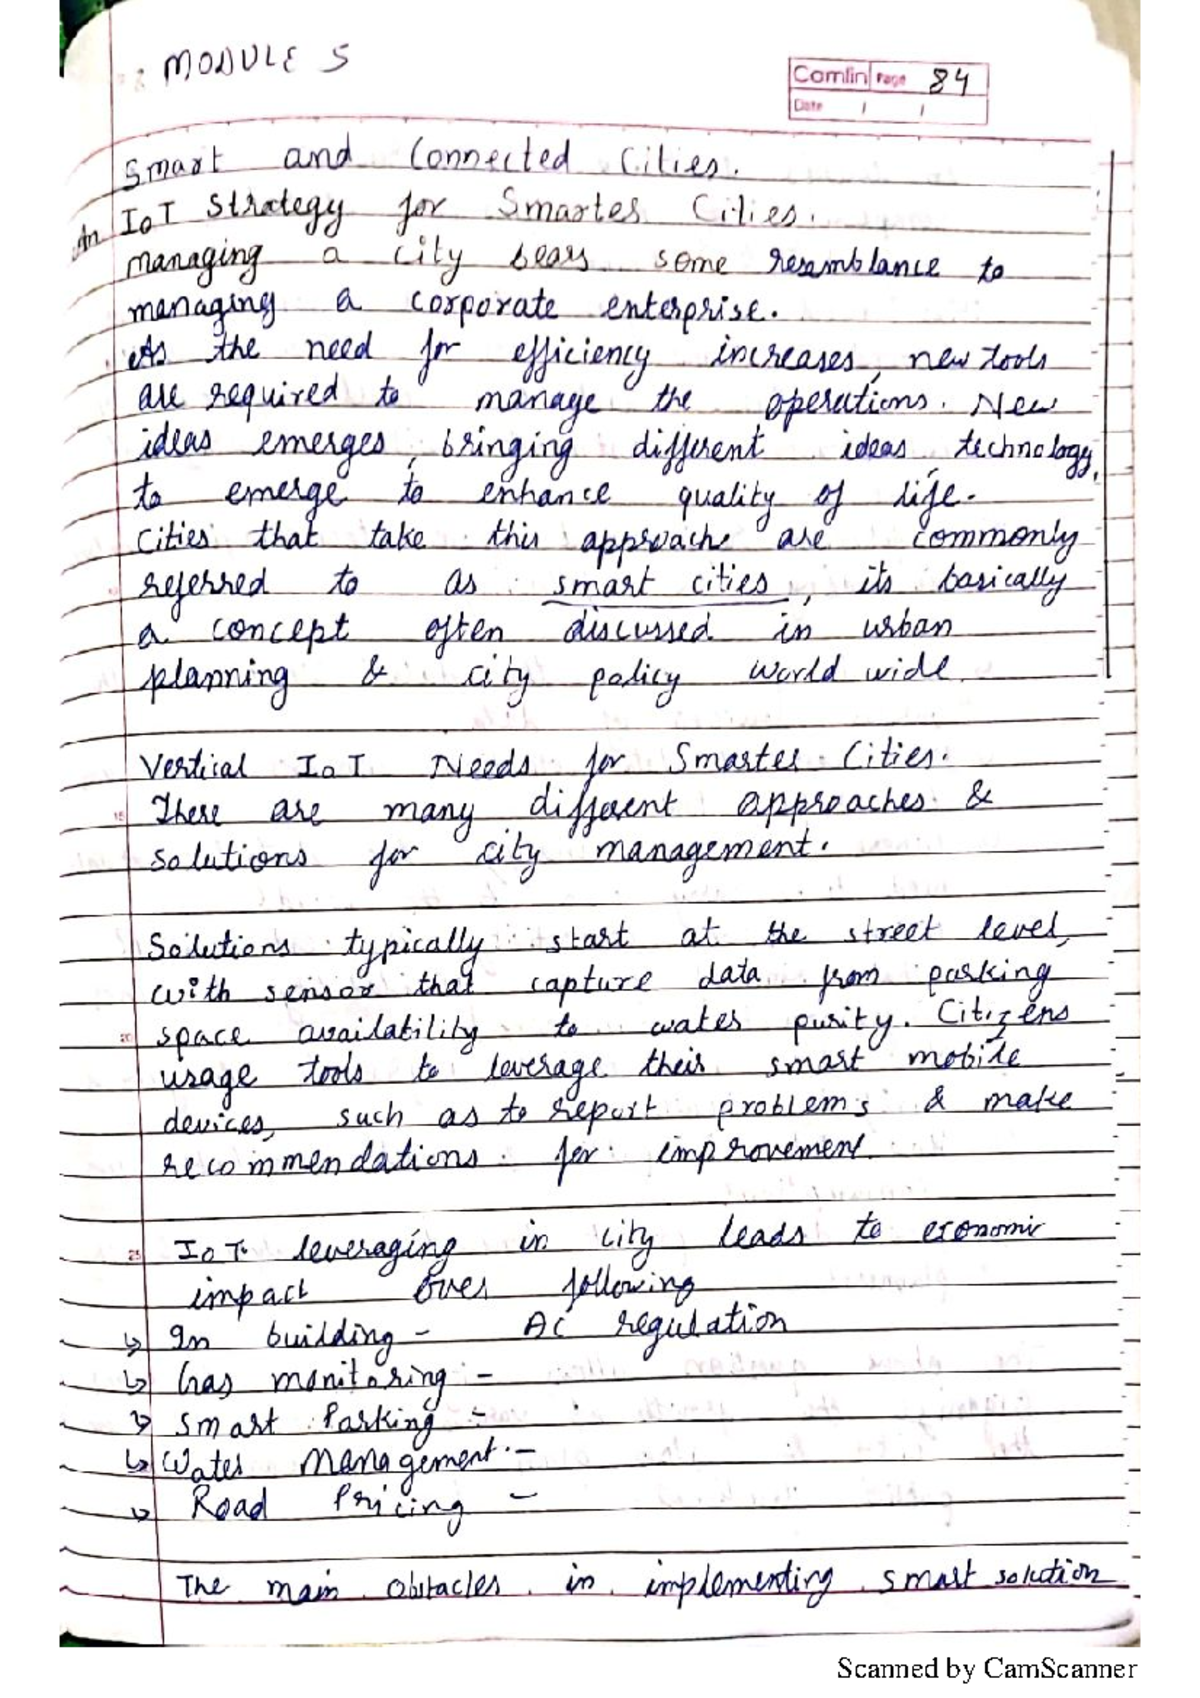 MODULE 5
Comlin Page 84
Date / /
Smart and Connected Cities.
An IoT Strategy for Smarter Cities.
managing a city bears some resemblance to
managing a corporate enterprise.
As the need for efficiency increases, new tools
are required to manage the operations. New
ideas emerges, bringing different ideas, technology,
to emerge to enhance quality of life.
Cities that take this approache are commonly
referred to as smart cities, its basically
a concept often discussed in urban
planning & city policy world wide.
Vertical IoT Needs for Smarter Cities.
15
There are many different approaches &
solutions for city management.
Solutions typically start at the street level,
with sensor that capture data from parking
20
space availability to water purity. Citizens
usage tools to leverage their smart mobile
devices, such as to report problems & make
recommendations for improvement.
25
IoT leveraging in city leads to economic
impact over following
↳ In building - AC regulation
↳ Gas monitoring -
↳ Smart Parking -
↳ Water Management -
↳ Road Pricing -
The main obstacles in implementing smart solution
Scanned by CamScanner